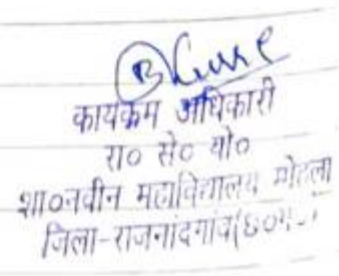 कार्यक्रम अधिकारी
रा० से० यो०
शा०नवीन महाविद्यालय
जिला-राजनांदगांव(छ०ग०)